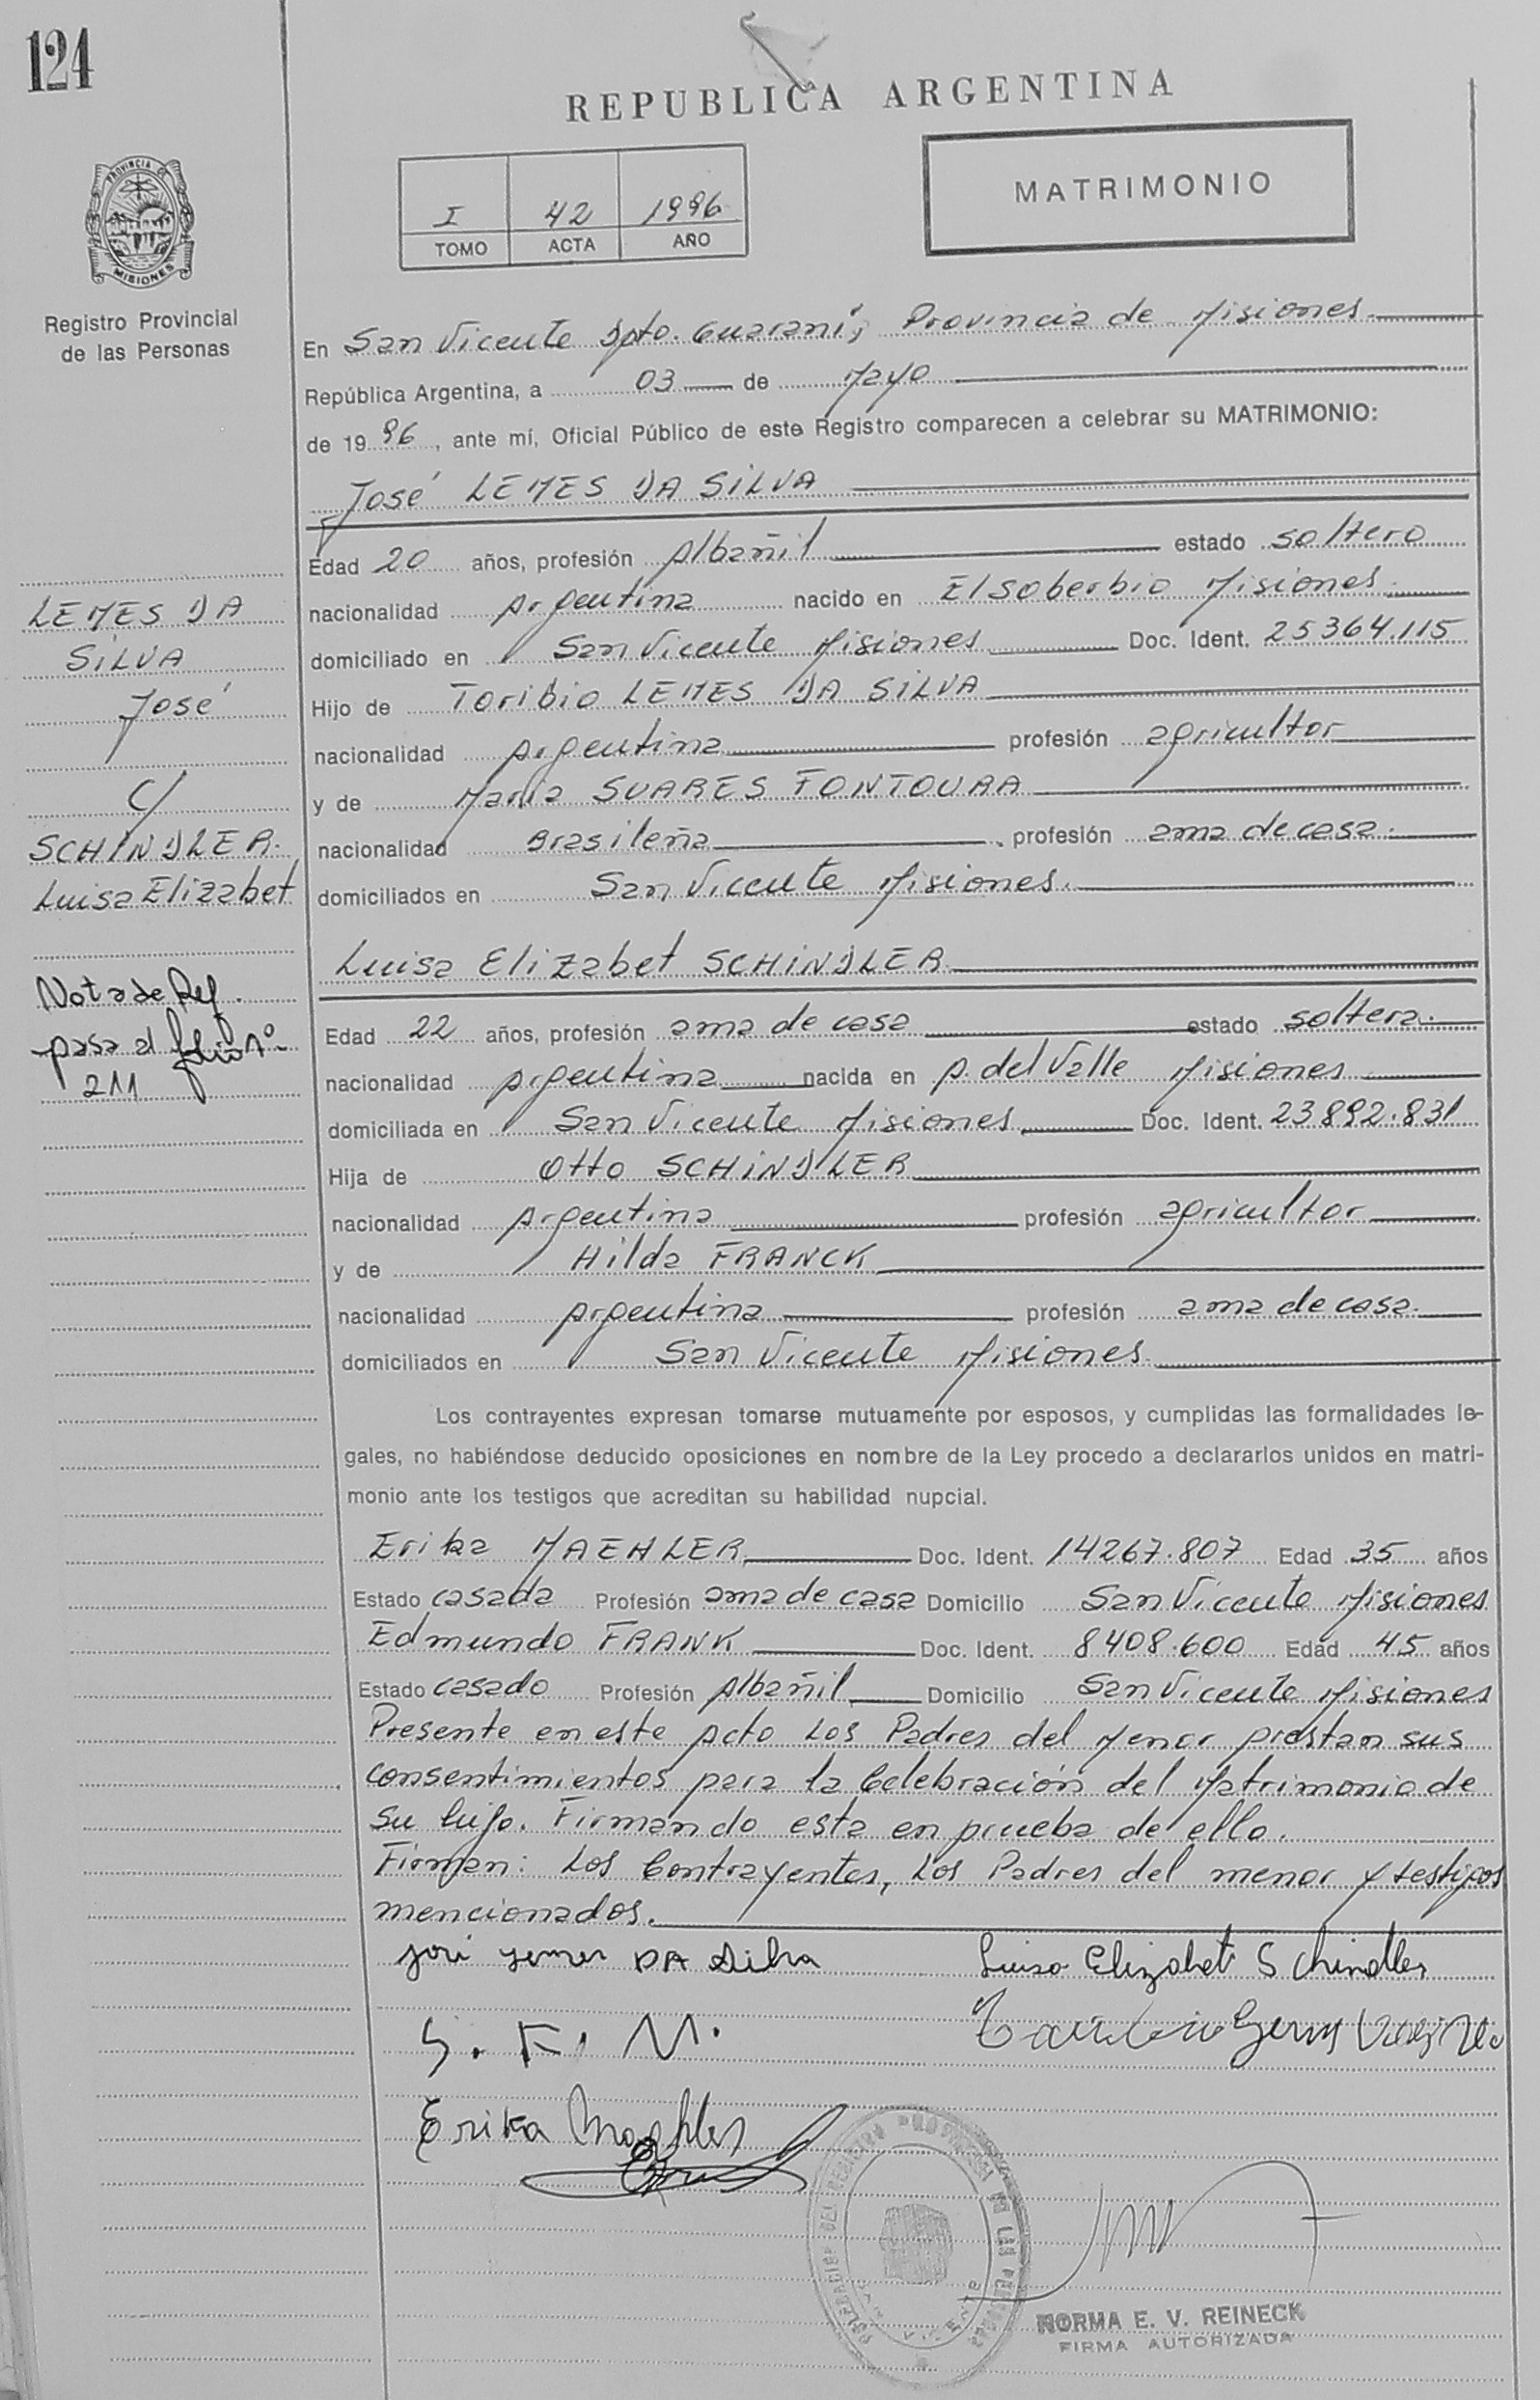 124
REPUBLICA ARGENTINA
I 42 1996
TOMO ACTA AÑO
MATRIMONIO
PROVINCIA DE
MISIONES
Registro Provincial
de las Personas
LEMES DA
SILVA
José
C/
SCHINDLER.
Luisa Elizabet
Nota de Ref.
pasa al folio nº
211
En San Vicente Dpto. Guaraní, Provincia de Misiones.
República Argentina, a 03 de Mayo
de 1996, ante mí, Oficial Público de este Registro comparecen a celebrar su MATRIMONIO:
José LEMES DA SILVA
Edad 20 años, profesión Albañil estado soltero
nacionalidad Argentina nacido en El Soberbio Misiones.
domiciliado en San Vicente Misiones Doc. Ident. 25364.115
Hijo de Toribio LEMES DA SILVA
nacionalidad Argentina profesión agricultor
y de María SUARES FONTOURA
nacionalidad Brasileña profesión ama de casa.
domiciliados en San Vicente Misiones.
Luisa Elizabet SCHINDLER
Edad 22 años, profesión ama de casa estado soltera.
nacionalidad Argentina nacida en A. del Valle Misiones
domiciliada en San Vicente Misiones Doc. Ident. 23892.831
Hija de Otto SCHINDLER
nacionalidad Argentina profesión agricultor
y de Hilda FRANCK
nacionalidad Argentina profesión ama de casa.
domiciliados en San Vicente Misiones.
Los contrayentes expresan tomarse mutuamente por esposos, y cumplidas las formalidades le-
gales, no habiéndose deducido oposiciones en nombre de la Ley procedo a declararlos unidos en matri-
monio ante los testigos que acreditan su habilidad nupcial.
Erika MAEHLER Doc. Ident. 14267.807 Edad 35 años
Estado casada Profesión ama de casa Domicilio San Vicente Misiones
Edmundo FRANK Doc. Ident. 8408.600 Edad 45 años
Estado casado Profesión Albañil Domicilio San Vicente Misiones
Presente en este Acto Los Padres del Menor prestan sus
consentimientos para la Celebración del Matrimonio de
su hijo. Firmando esta en prueba de ello.
Firman: Los Contrayentes, Los Padres del menor y testigos
mencionados.
José Lemes DA Silva Luisa Elizabet Schindler
S. F. M.
Erika Maehler
NORMA E. V. REINECK
FIRMA AUTORIZADA